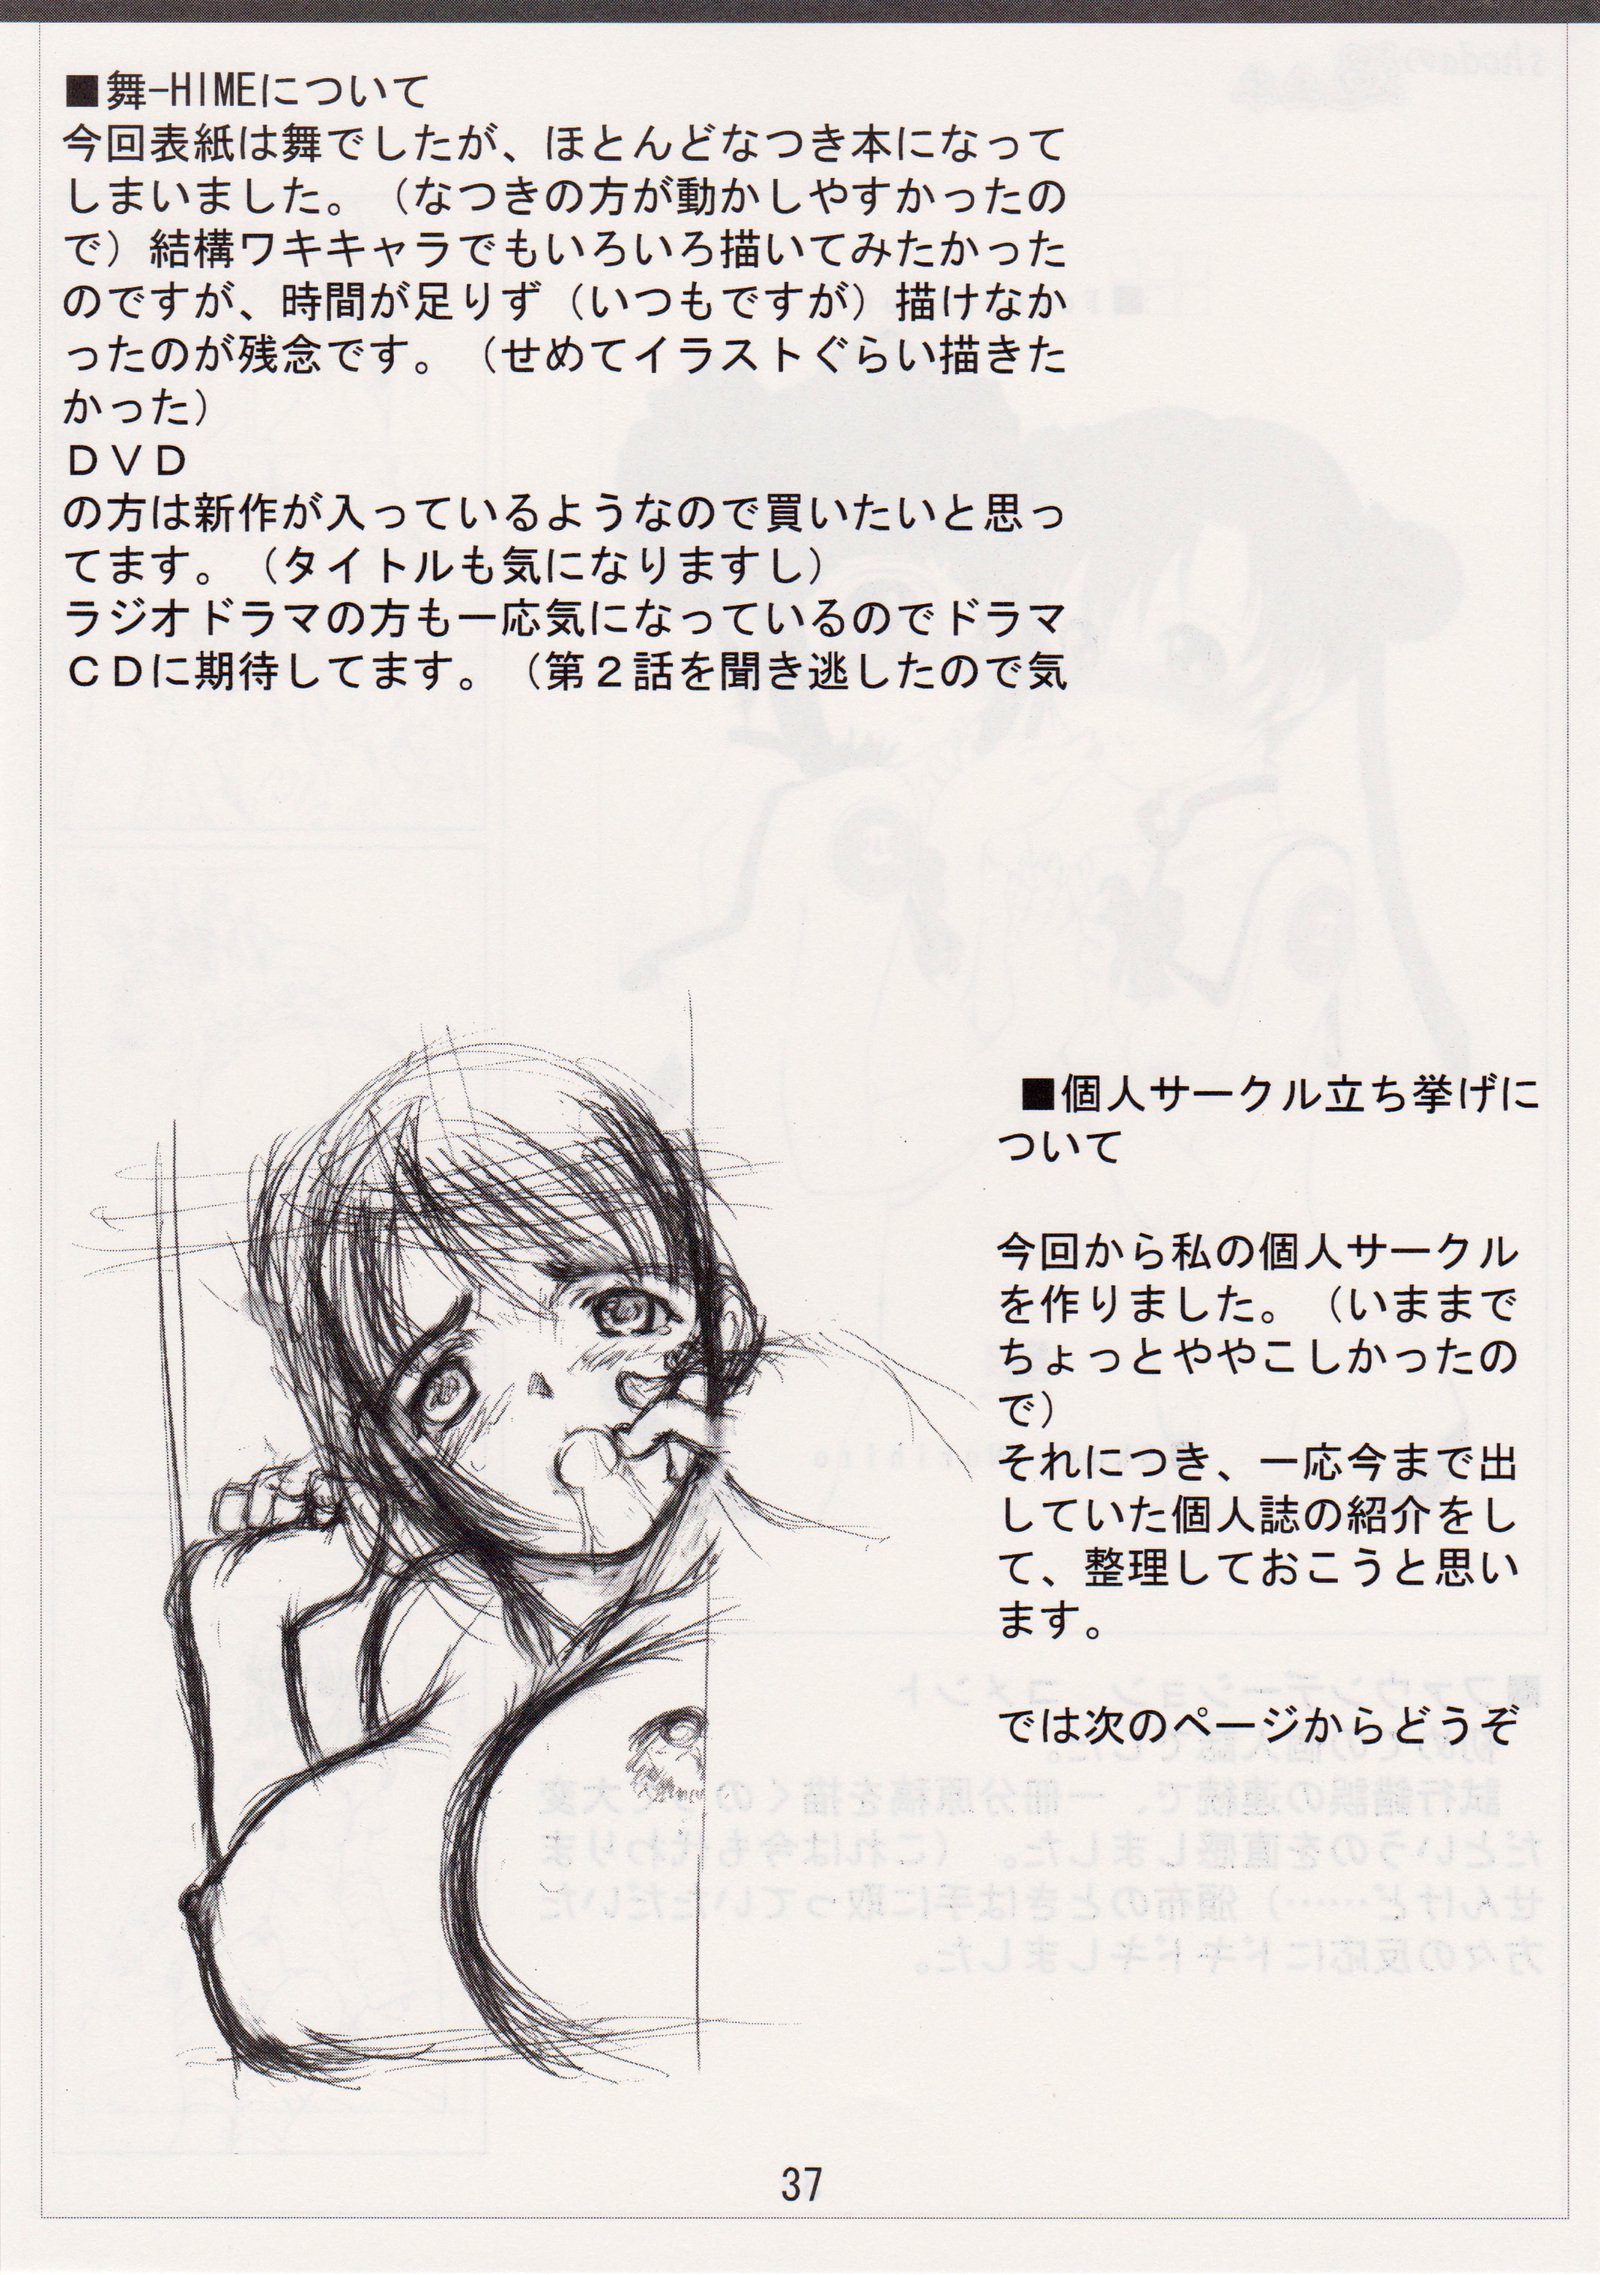 ■舞-HIMEについて
今回表紙は舞でしたが、ほとんどなつき本になって
しまいました。（なつきの方が動かしやすかったの
で）結構ワキキャラでもいろいろ描いてみたかった
のですが、時間が足りず（いつもですが）描けなか
ったのが残念です。（せめてイラストぐらい描きた
かった）
ＤＶＤ
の方は新作が入っているようなので買いたいと思っ
てます。（タイトルも気になりますし）
ラジオドラマの方も一応気になっているのでドラマ
ＣＤに期待してます。（第２話を聞き逃したので気
■個人サークル立ち挙げに
ついて
今回から私の個人サークル
を作りました。（いままで
ちょっとややこしかったの
で）
それにつき、一応今まで出
していた個人誌の紹介をし
て、整理しておこうと思い
ます。
では次のページからどうぞ
37